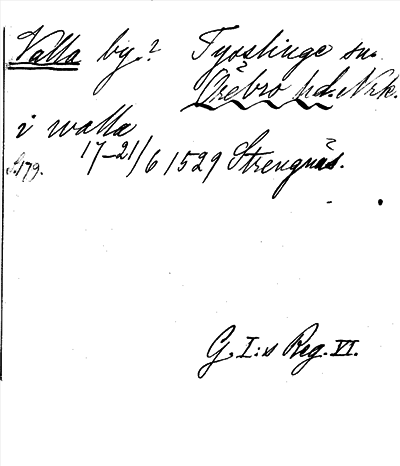 Valla by? Tysslinge sn.
Örebro hd. Nrk.
i walla
S. 179. 17-21/6 1529 Strengnäs.
G. I:s Reg. VI.